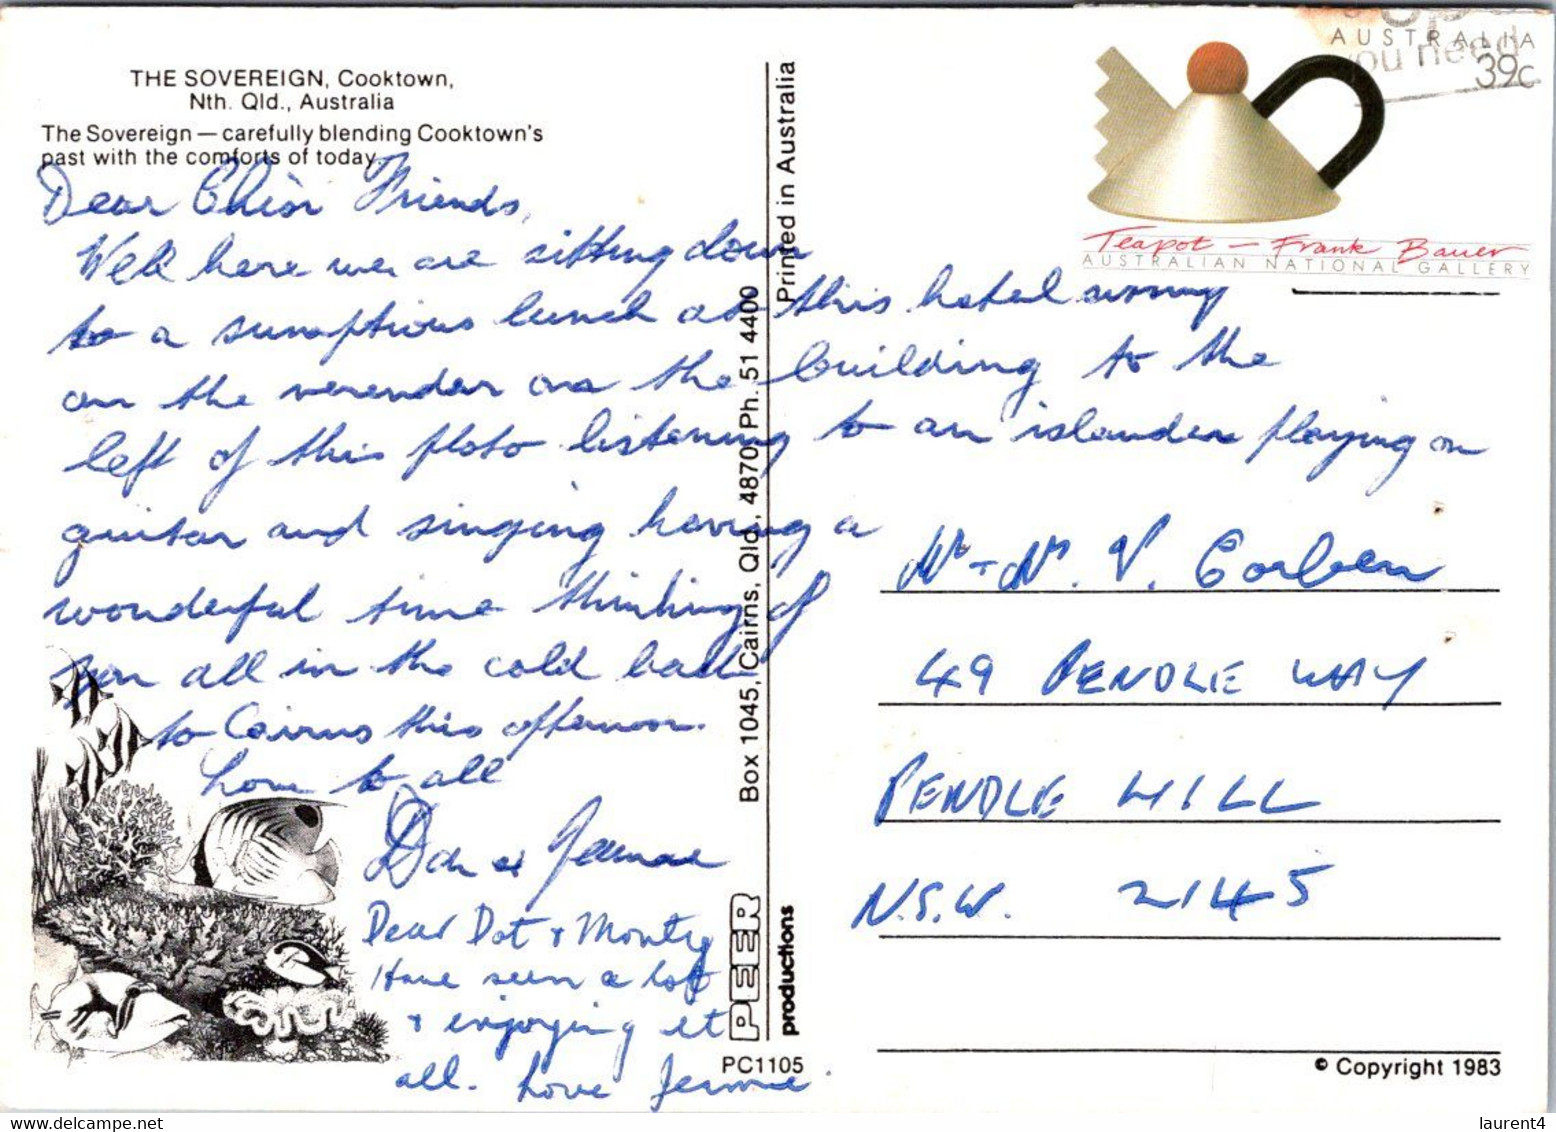 THE SOVEREIGN, Cooktown,
Nth. Qld., Australia
The Sovereign — carefully blending Cooktown's
past with the comforts of today.
Dear Choir Friends,
Well here we are sitting down
to a sumptious lunch at this hotel
on the verendar on the building to the
left of this photo listening to an islander playing on
guitar and singing having a
wonderful time thinking of
you all in the cold back
to Cairns this afternoon.
love to all
Don &
Dear Dot & Monty
Have seen a lot
& injoying it
all. Love
PEER
productions
PC1105
Box 1045, Cairns, Qld., 4870 Ph. 51 4400
Printed in Australia
AUSTRALIA
39c
you need
Teapot — Frank Bauer
AUSTRALIAN NATIONAL GALLERY
Mr + Mrs. V. Corben
49 PENDLE WAY
PENDLE HILL
N.S.W. 2145
© Copyright 1983
laurent4